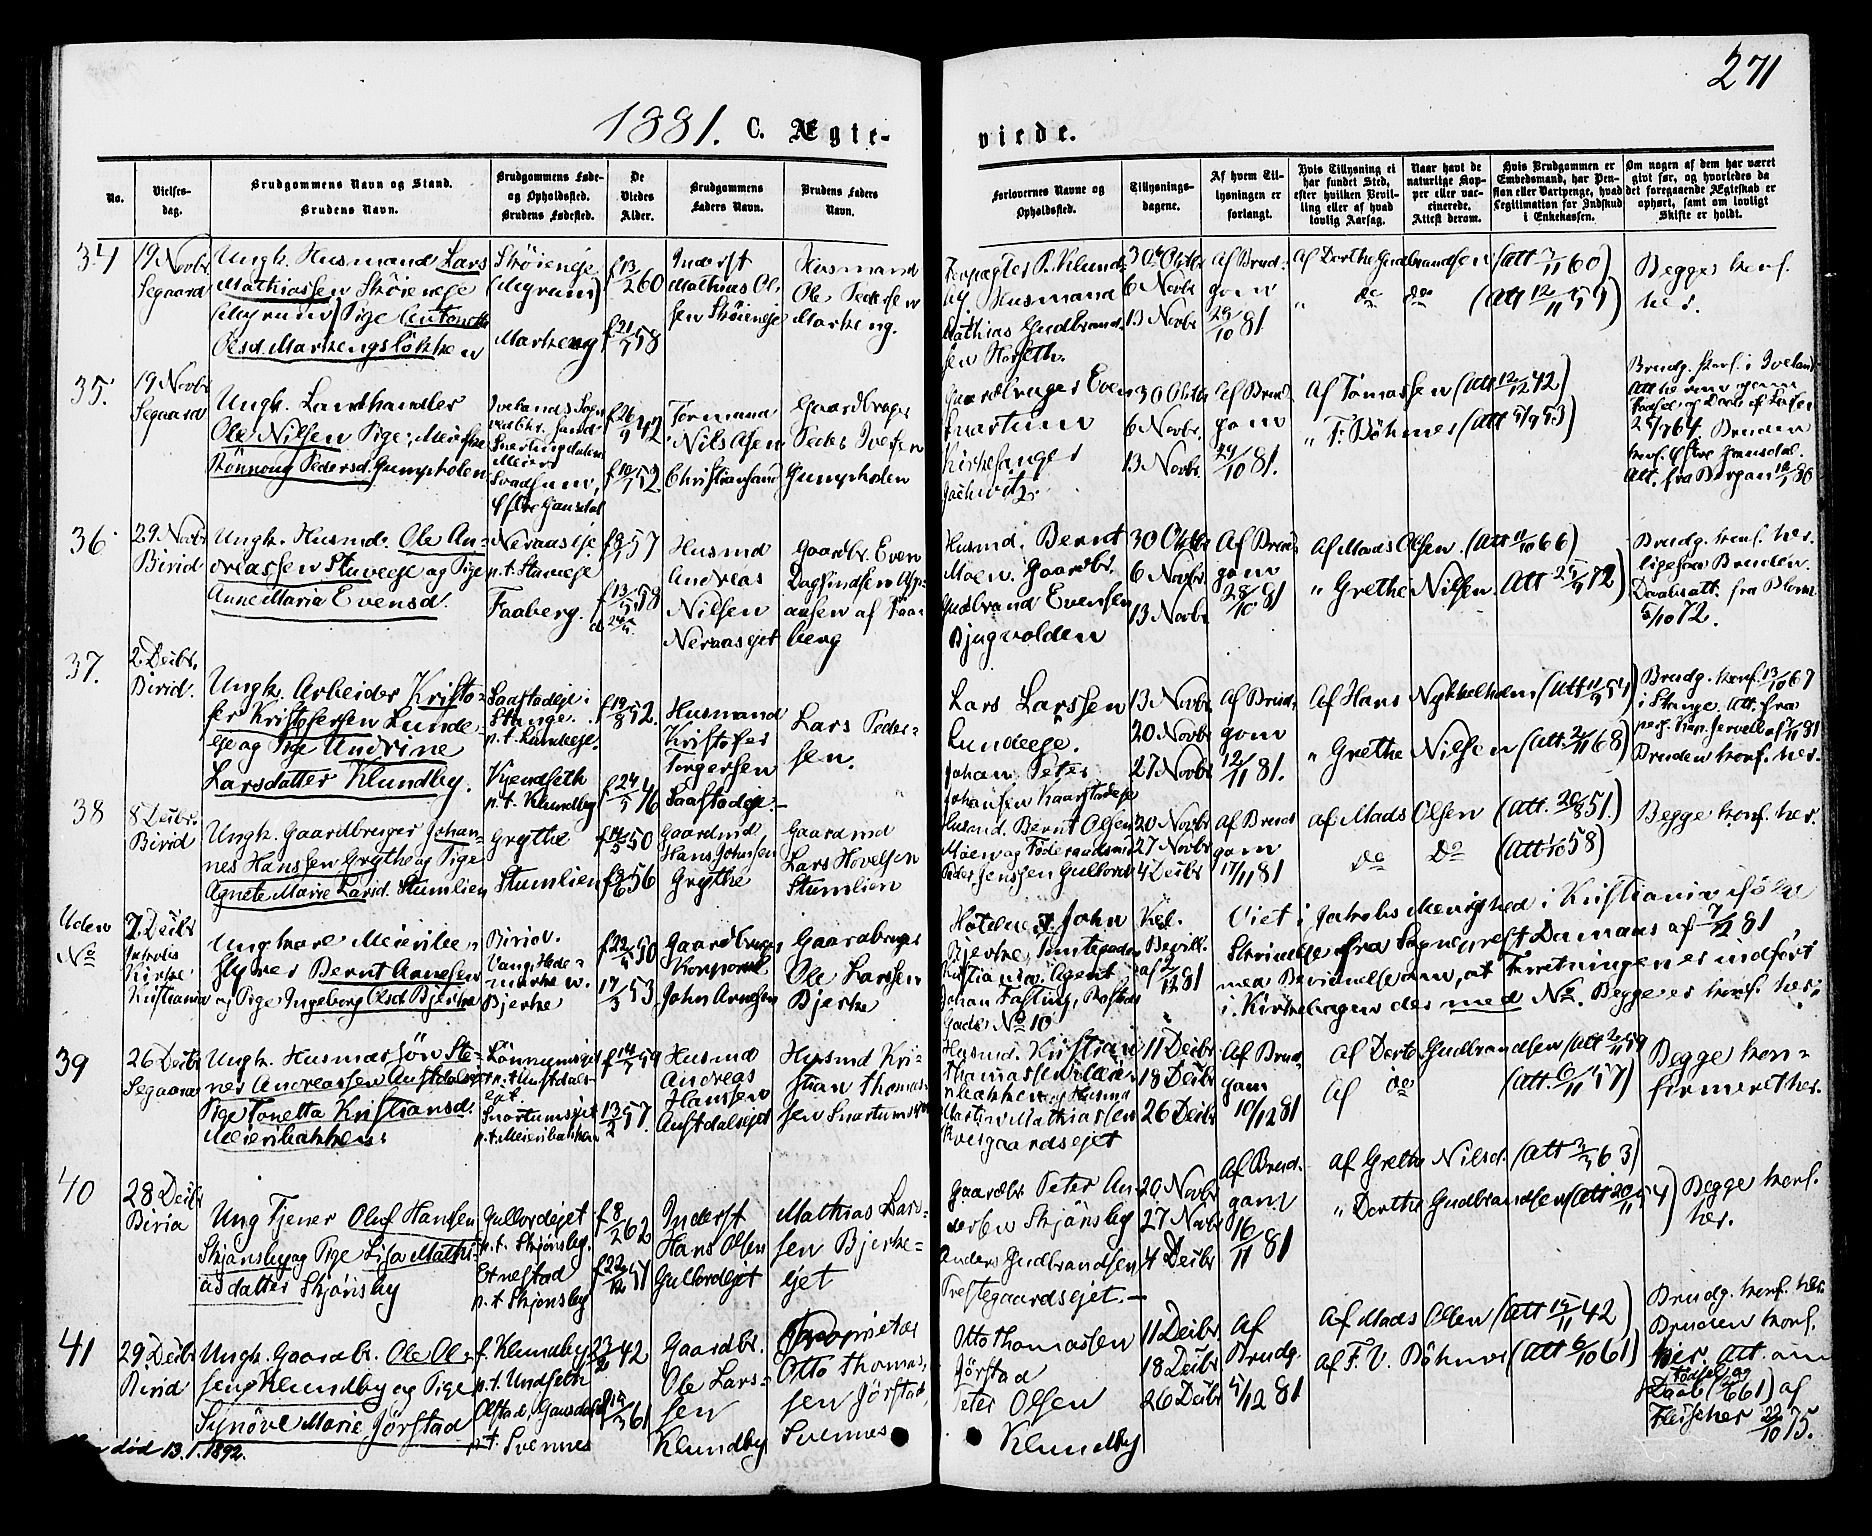 271
1881. C. Ægte-
viede.
No.
Vielses-
dag.
Brudgommens Navn og Stand.
Brudens Navn.
Brudgommens Føde-
og Opholdssted.
Brudens Fødested.
De
Viedes
Alder.
Brudgommens
Faders Navn.
Brudens Faders
Navn.
Forlovernes Navne og
Opholdssted.
Tillysnings-
dagene.
Af hvem Til-
lysningen er
forlangt.
Hvis Tillysning ei
har fundet Sted,
efter hvilken Bevil-
ling eller af hvad
lovlig Aarsag.
Naar havt de
naturlige Kop-
per eller vac-
cinerede.
Attest derom.
Hvis Brudgommen er
Embedsmand, har Pen-
sion eller Vartpenge, hvad
Legitimation for Indskud
i Enkekassen.
Om nogen af dem har været
givt før, og hvorledes da
det foregaaende Ægteskab er
ophørt, samt om lovligt
Skifte er holdt.
34
19 Novbr
Segaard
Ungk. Husmand Lars
Mathiassen Skøieneie
(Myrum) Pige Antonette
Olsd. Markengsløkken
Skøieneie
(Myrum)
Markeng
f 13/2 60
f 21/7 58
Inderst
Mathias Ol-
sen Skøieneie
Husmand
Ole Pedersen
Markeng.
Husmand
Mathias Gudbrand-
sen
30 Oktbr
6 Novbr
13 Novbr
Af Brud-
gom
29/10 81
Af Dorthe Gudbrandsen (Att 7/11 60)
" do do (Att 12/11 59)
Begge konf.
her.
35.
19 Novbr
Segaard
Ungk. Landhandler
Ole Nilsen Pige, Meierske
Rønnoug Pedersd. Gumpholen
Ivelands Sogn
Meieri
Svadsum,
Østre Gausdal
f 26/9 42
f 10/7 52
Formand
Nils Olsen
Christiansand
Gaardbruger
Peder Iversen
Gumpholen
Gaardbruger Even
Snartum
Kirkesanger
30 Oktbr
6 Novbr.
13 Novbr.
Af Brud-
gom
29/10 81.
Af Tomassen (Att 12/12 42)
" F. Bøhmer (Att 5/9 53)
Brudg. konf. i Iveland
25/7 64. Bruden
konf. Østre Gausdal.
Att. fra Borgan 12/1 80
36
29 Novbr
Birid
Ungk. Husmd. Ole An-
dreassen Stuveeie og Pige
Anne Maria Evensd.
Neraaseie
p.t. Stuveeie
Faaberg.
f 8/7 57
f 13/5 58
Husmd
Andreas
Nilsen
Neraaseiet
Gaardbr. Even
Dagfindsen
af Faa-
berg
Husmd. Bernt
Moen. Gaardbr.
Gudbrand Evensen
Bjugvolden
30 Oktbr
6 Novbr
13 Novbr
Af Brud-
gom
28/10 81
Af Mads Olsen. (Att 11/10 66)
" Grethe Nilsen (Att 25/9 72)
Brudg. konf. her.
ligesaa Bruden.
Daabsatt. fra Blom
5/10 72.
37.
2 Decbr.
Birid.
Ungk. Arbeider Kristo-
fer Kristofersen Lunde-
eie og Pige Andrine
Larsdatter Klundby.
Saastadeie i
Stange.
p.t. Lundeeie.
Kyendseth
p.t. Klundby
f 19/8 52.
f 24/5 46
Husmand
Kristofer
Torgersen
Saastadeie.
Lars Peder-
sen.
Lars Larssen
Lundeeie.
Johan Peter
Johansen
13 Novbr
20 Novbr
27 Novbr
Af Brud-
gom
12/11 81.
Af Hans Nykkelholm (Att 11/9 54)
" Grethe Nilsen (Att. 2/11 68)
Brudg. konf. 13/10 67
i Stange. Att. fra
Bruden konf. her.
38
8 Decbr.
Birid
Ungk. Gaardbruger Johan-
nes Hanssen Grythe og Pige
Agnete Marie Larsd. Stumlien
Grythe
Stumlien
f 12/5 50
f 3/6 56
Gaardmd
Hans Johnsen
Grythe
Gaardmd
Lars Hovelsen
Stumlien
Husmd. Bernt Olsen
Moen og Føderaadsmd
Peder Jenssen Gullord
20 Novbr
27 Novbr
4 Decbr
Af Brud-
gom
17/11 81
Af Mads Olsen (Att. 20/8 51.)
do do (Att 1/10 58)
Begge konf. her.
Uden
No
7. Decbr
Jakobs
Kirke
Kristiania
Ungkarl Meieribe-
styrer Bernt Arnesen
og Pige Ingeborg Olsd Bjerke
Birid.
Vang, Hede-
marken.
Bjerke
f 22/4 50
17/3 53
Gaardbruger
Korporal
John Arnesen
Gaardbruger
Ole Larssen
Bjerke
John
Bjerke,
Kristiania, Agent
Johan Fasting,
Gade No 10
Kgl.
Bevill.
af 2/12 81
Viet i Jakobs Menighed i Kristiania ifølge
Skrivelse fra Sognepræst Damaas af 7/12 81
med Bevidnelse om, at Forretningen er indført
i Kirkebogen der med No. Begge er konf. her.
39
26 Decbr
Segaard
Ungk. Husmandssøn Ste-
ner Andreassen Austdalseie
Pige Tonetta Kristiansd.
Meieribakken.
p.t. Austdals-
eiet
Snartumseiet
p.t. Meieribakken
f 14/7 59
13/2 57.
Husmd
Andreas
Hanssen
Austdalseiet
Husmd Kri-
stian Thomas-
sen Snartumseie
Husmd. Kristian
Thomassen
og Husmd
Martin Mathiassen
11 Decbr
18 Decbr
26 Decbr
Af Brud-
gom
10/12 81
Af Dorte Gudbrandsen (Att 2/11 59
Af do (Att. 6/11 57)
Begge kon-
firmeret her.
40
28 Decbr
Birid
Ung. Tjener Oluf Hansen
Skjønsby og Pige Lisa Mathi-
asdatter Skjønsby
Gullordeiet
p.t. Skjønsby.
Ernestad
p.t. Skjønsby
f 8/2 62
f 22/12 57
Inderst
Hans Olsen
Gullordeiet
Mathias Lars-
sen Bjerke-
eiet
Gaardbr Peter An-
dersen Skjønsby
Anders Gudbrandsen
Prestegaardseiet.
20 Novbr
27 Novbr
4 Decbr
Af Brud-
gom
16/11 81
Af Grethe Nilsd. (Att 3/7 63)
" Dorthe Gudbrandsen (Att 20/11 54)
Begge konf.
her.
41
29 Decbr
Birid
Ungk. Gaardbr. Ole Ol-
sen Klundby og Pige
Synøve Marie Jørstad
død 13.1.1892.
f. Klundby
p.t. Undseth
Olstad, Gausdal
p.t. Svennes
23/2 42
f 12/3 61
Gaardbr.
Ole Lars-
sen
Klundby
Proprietær
Otto Thomas-
sen Jørstad,
Svennes
Otto Thomassen
Jørstad
Peter Olsen
Klundby
11 Decbr
18 Decbr
26 Decbr
Af
Brudg.
5/12 81
Af Mads Olsen (Att 15/11 42)
Af F. V. Bøhmer (Att 6/10 61)
Brudg. konf. her.
Bruden konf.
her. Att. om
Fødsel og
Daab (4/6 61) af
Fleischer 22/10 75.